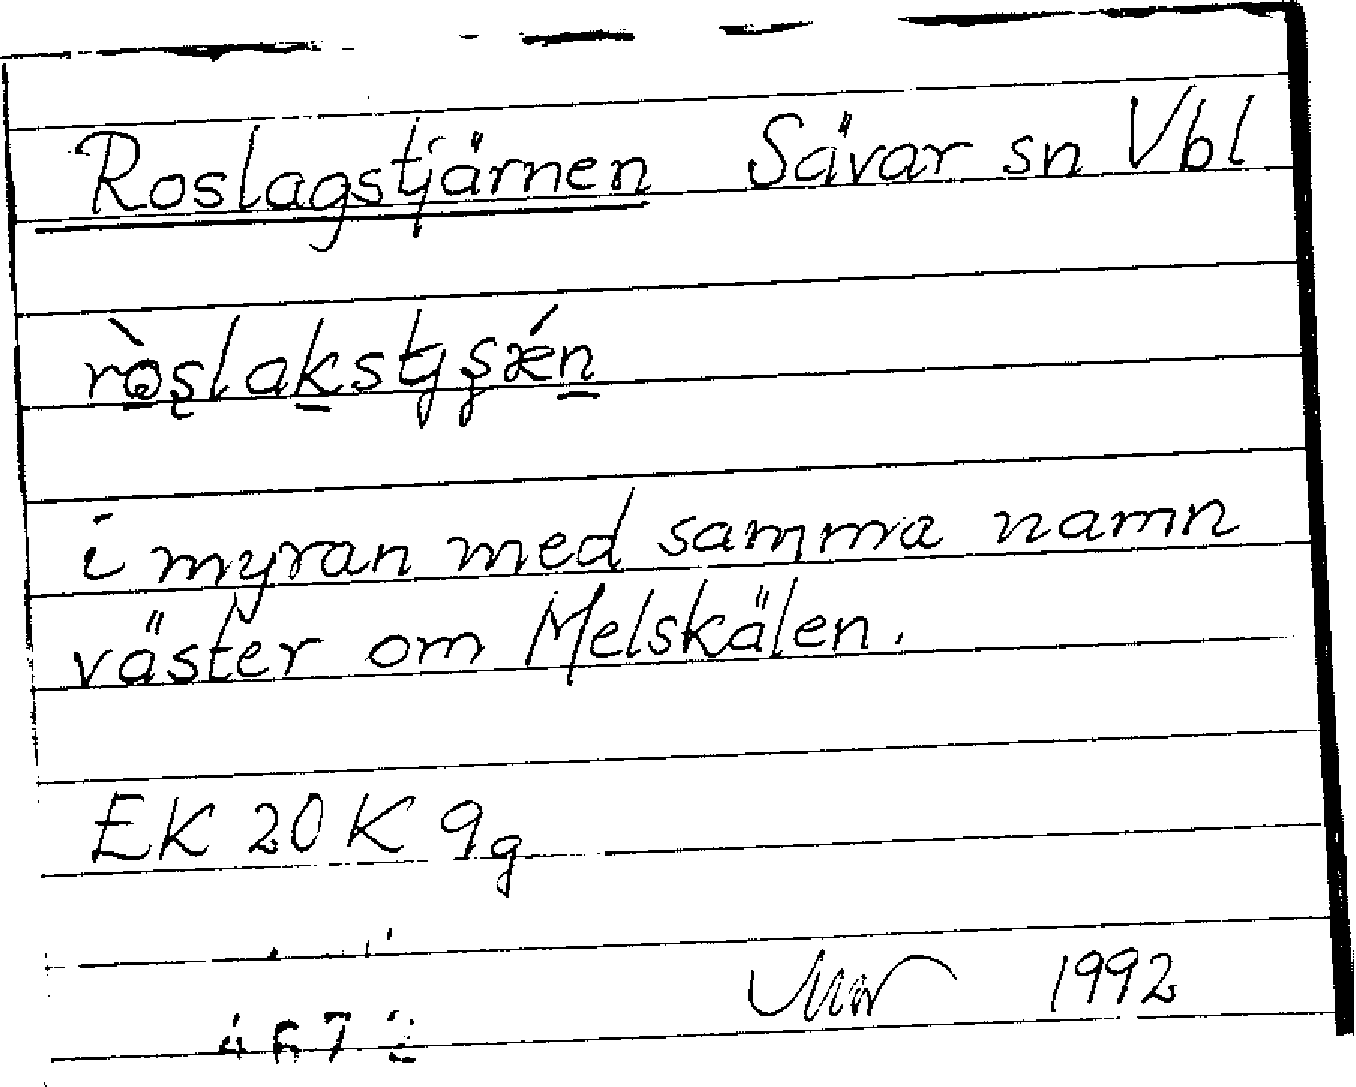 Roslagstjärnen Sävar sn Vbl
i myran med samma namn
väster om Melskälen.
EK 20 K 9g
1992